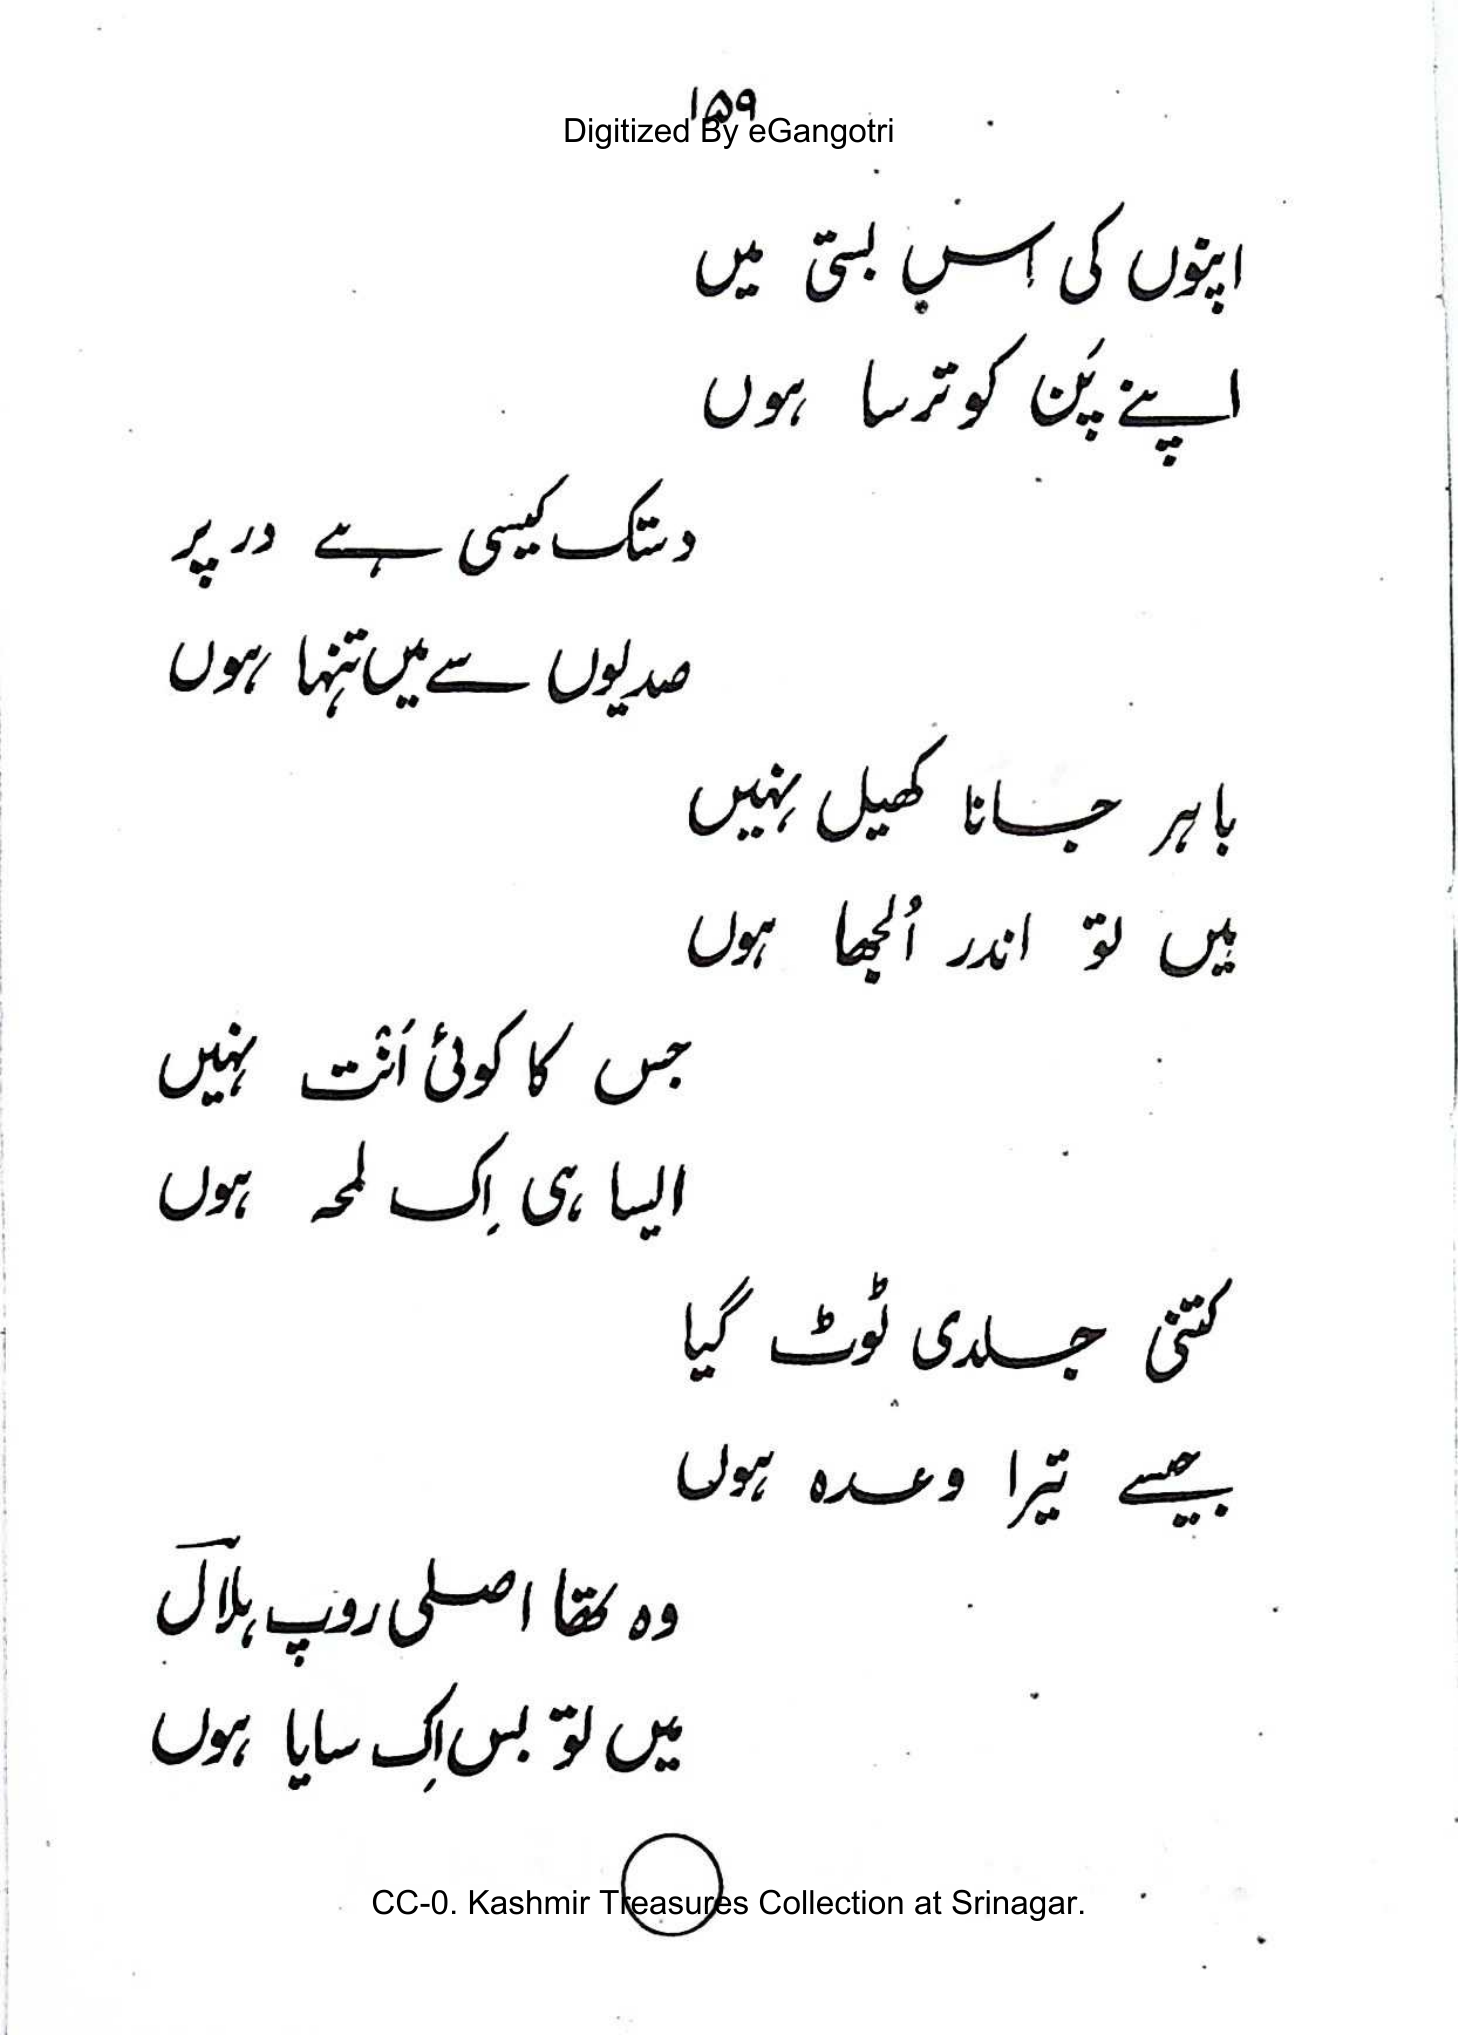 ۱۵۹
Digitized By eGangotri
اپنوں کی اِس بستی میں
اپنے پَن کو ترسا ہوں
دستک کیسی ہے در پر
صدیوں سے میں تنہا ہوں
باہر جانا کھیل نہیں
میں تو اندر اُلجھا ہوں
جس کا کوئی اَنْت نہیں
ایسا ہی اِک لمحہ ہوں
کتنی جلدی ٹوٹ گیا
جیسے تیرا وعدہ ہوں
وہ تھا اصلی روپ ہلالؔ
میں تو بس اِک سایا ہوں
CC-0. Kashmir Treasures Collection at Srinagar.